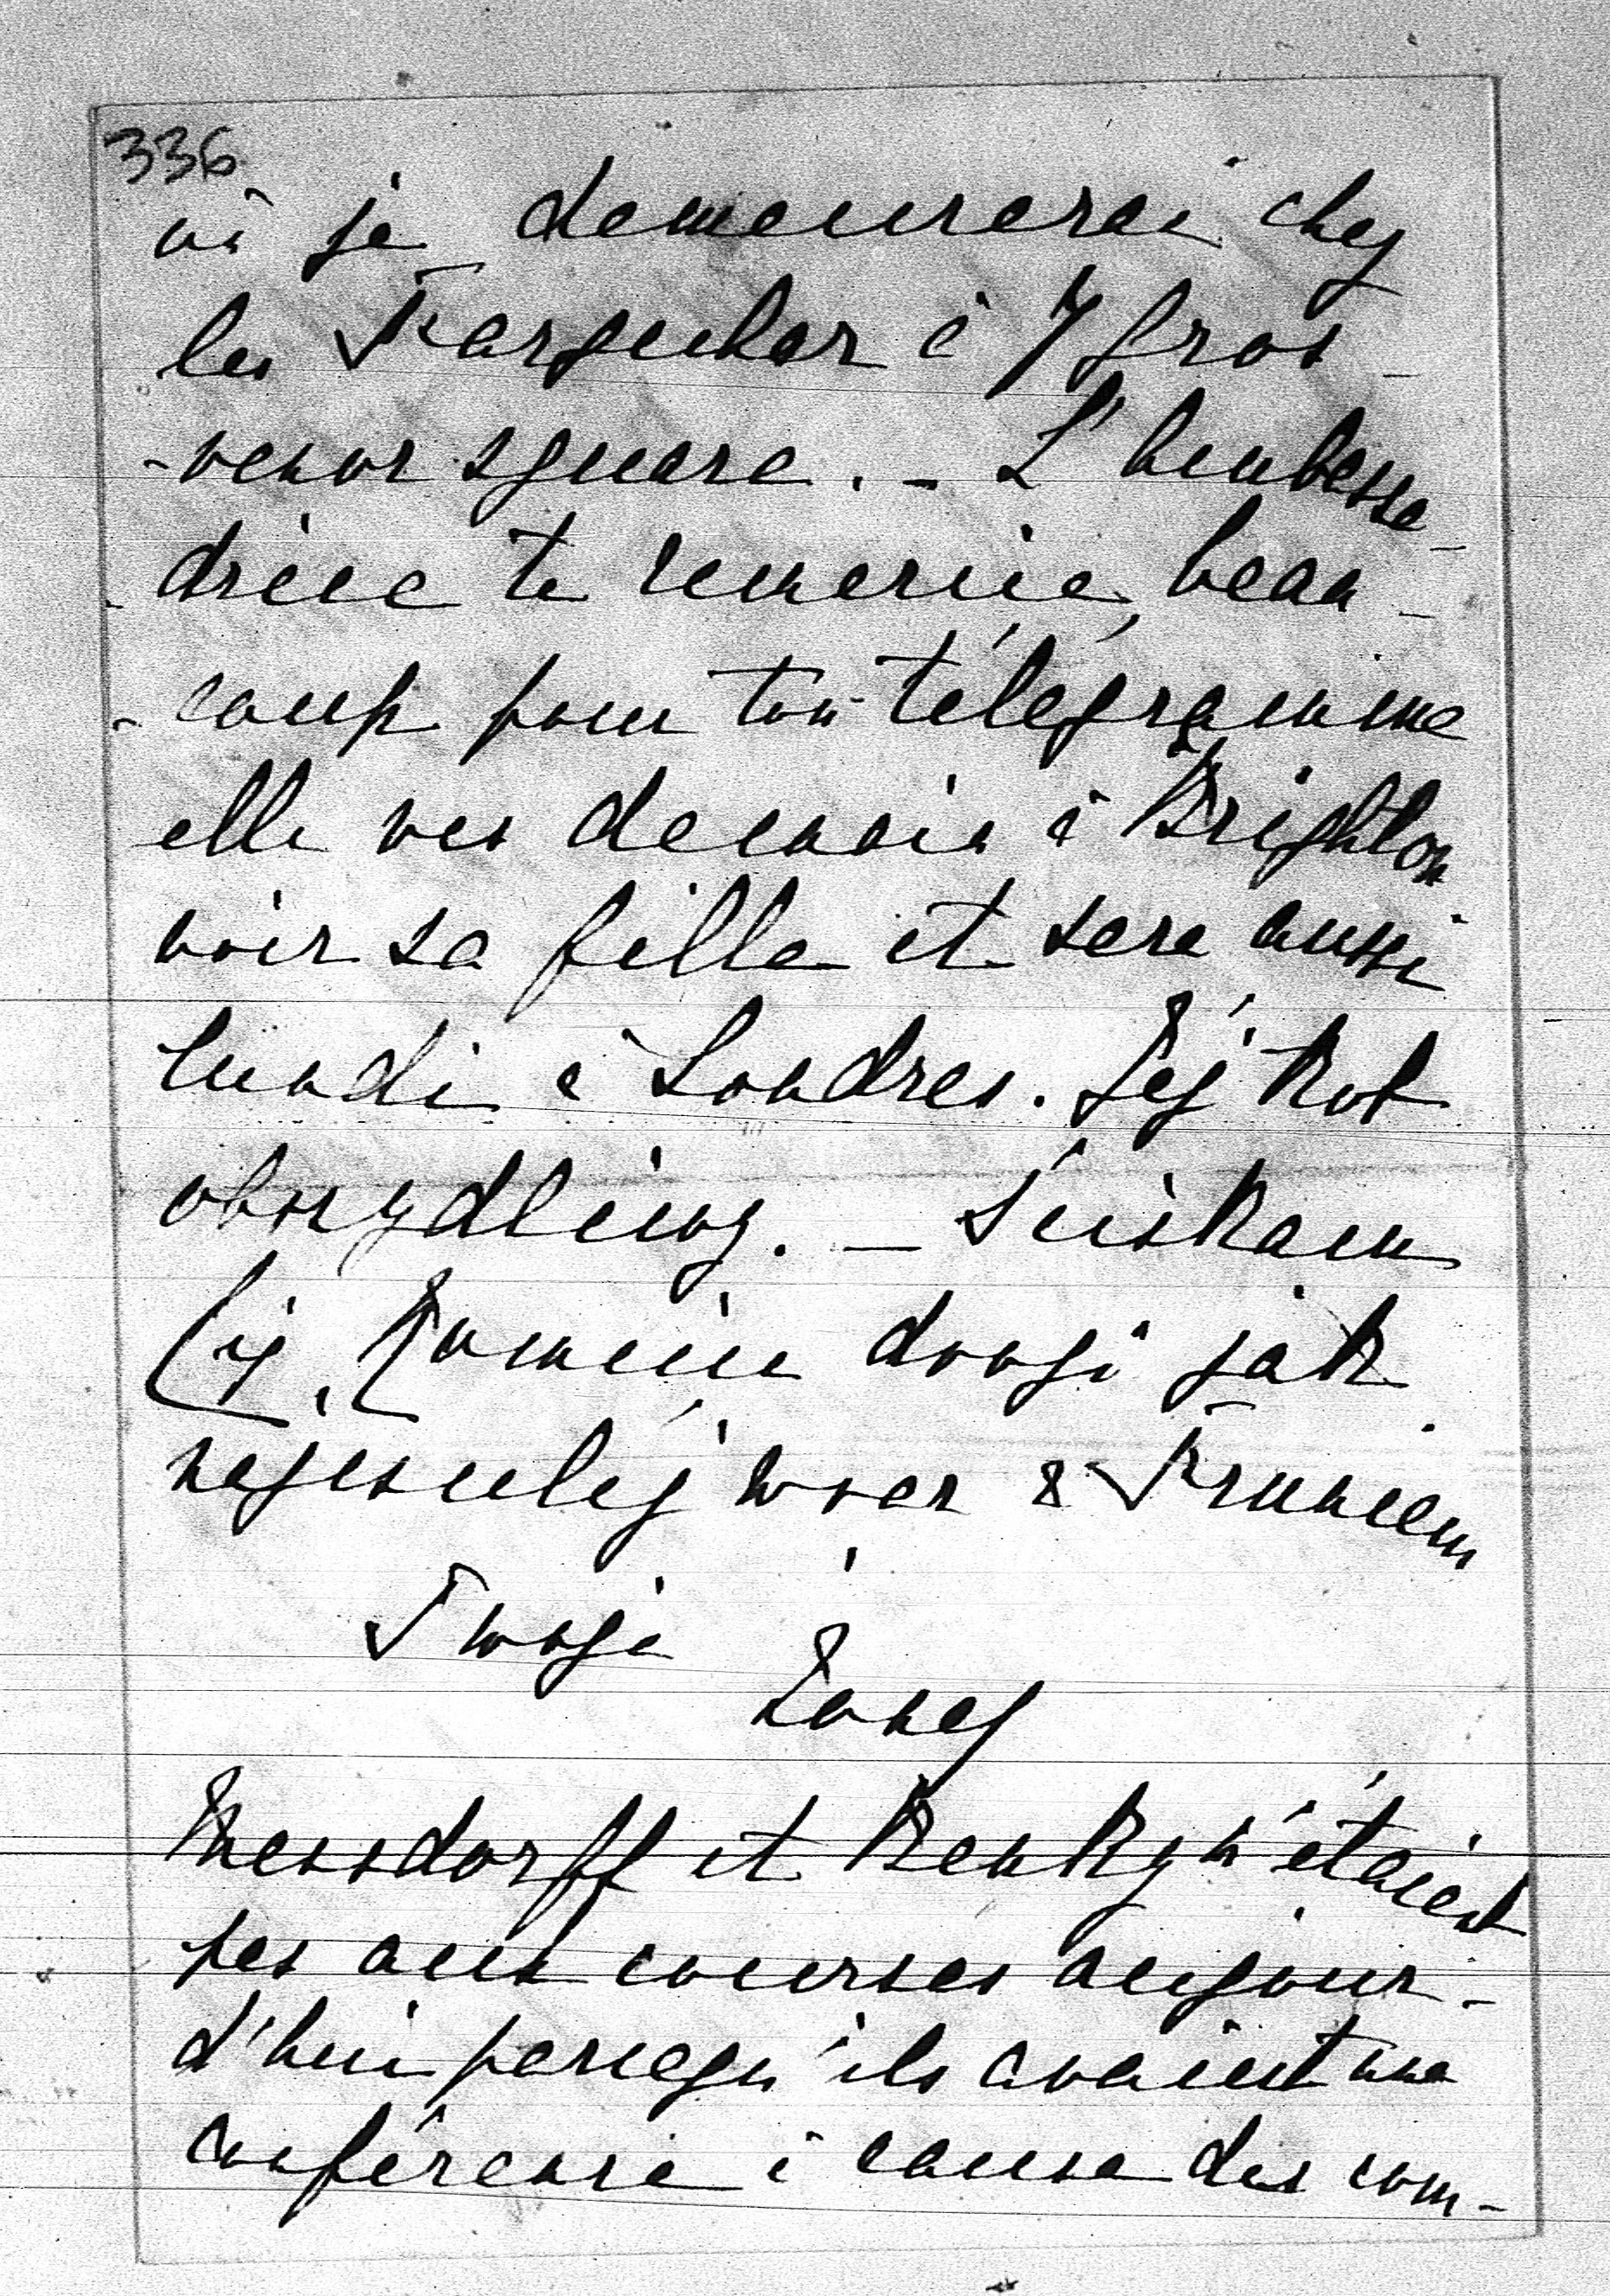 336
où je demeurerai chez
les Farquhar à 7 Gros-
-venor square. - L'Ambassa-
-drice te remercie beau-
-coup pour ton télégramme
elle va demain à Brighton
voir sa fille et sera aussi
lundi à Londres.
obrzydliwy. - Sciskam
Cię
najczulej
Twoja
Mensdorff et n'étaient
pas aux courses aujour-
d'hui parcequ'ils avaient une
conférence à cause des com-